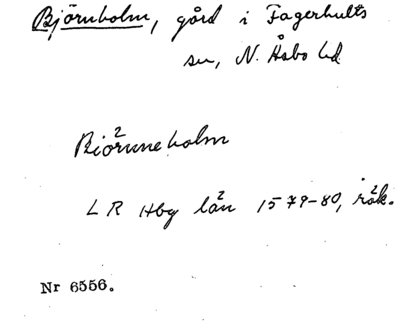 Björnholm, gård i Fagerhults
sn, N. Åsbo hd.
Biörnneholm
LR Hbg län 1579-80, räk.
Nr 6556.